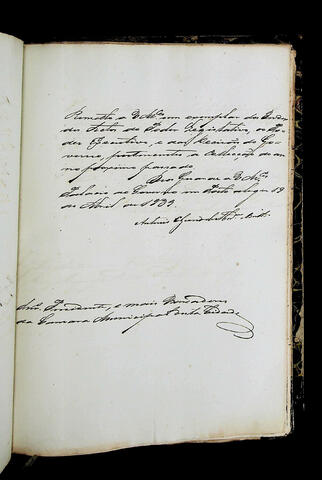 Remetto a VMces um exemplar do Indice
dos Actos do Poder Legislativo, do Po-
der Executivo, e das Decisões do Go-
verno pertencentes a Collecção do an-
no proximo passado.
Deos Guarde a VMces
Palacio do Governo em Porto Alegre 19
de Abril de 1839.
Antonio
Snrs. Presidente, e mais Vereadores
da Camara Municipal desta Cidade